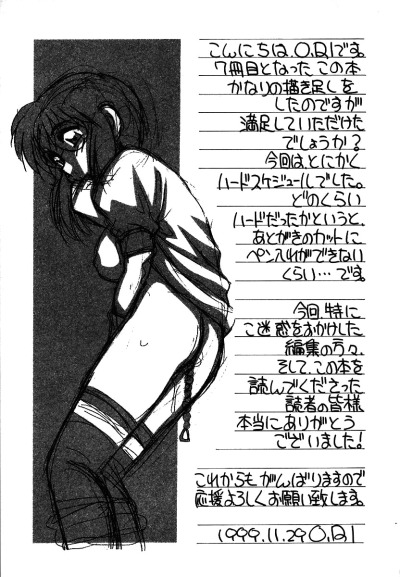 こんにちは、O.RIです。
7冊目となったこの本
かなりの描き足しを
したのですが
満足していただけた
でしょうか?
今回は、とにかく
ハードスケジュールでした。
どのくらい
ハードだったかというと、
あとがきのカットに
ペン入れができない
くらい…です。
今回、特に
ご迷惑をおかけした
編集の方々、
そして、この本を
読んでくださった
読者の皆様
本当にありがとう
ございました!
これからもがんばりますので
応援よろしくお願い致します。
1999.11.29 O.RI